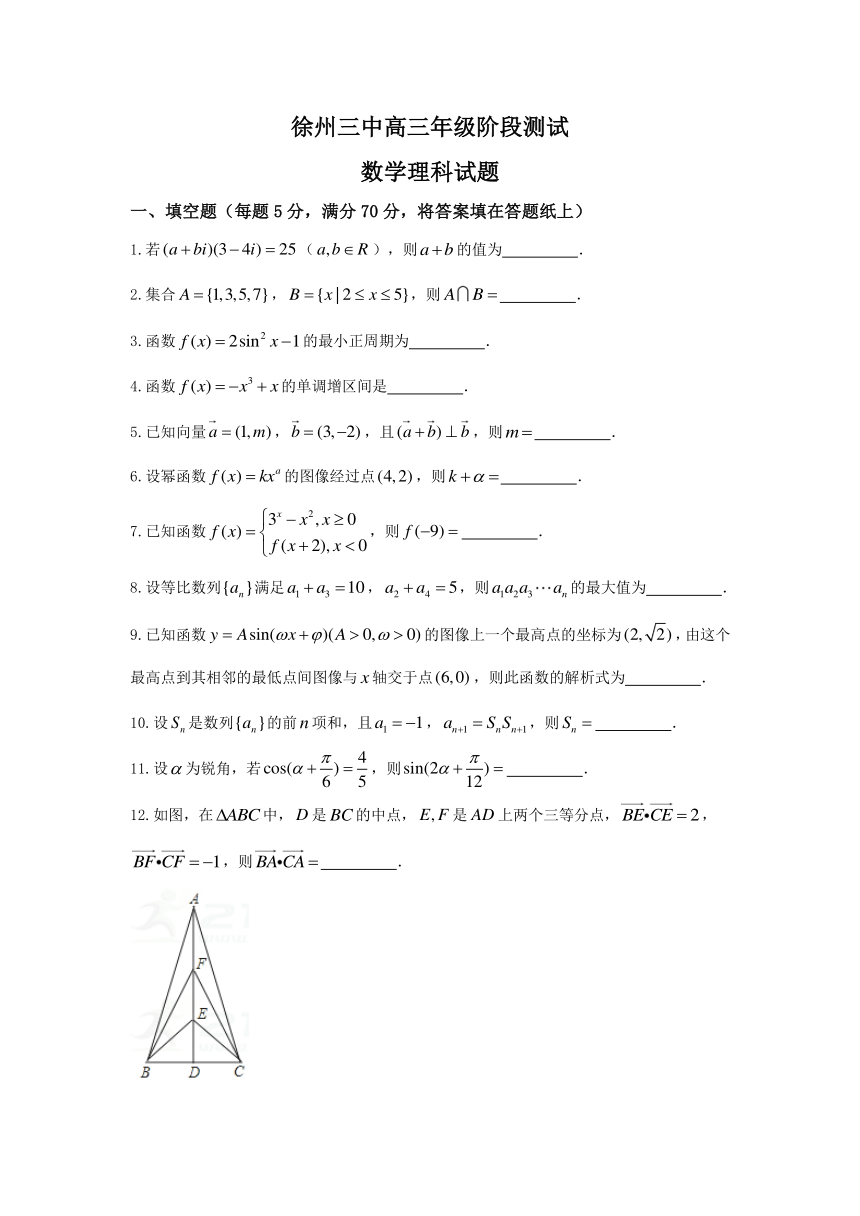 徐州三中高三年级阶段测试
数学理科试题
一、填空题（每题 5 分，满分 70 分，将答案填在答题纸上）
1.若(a+bi)(3−4i)=25（a,b∈R），则a+b的值为＿＿＿＿．
2.集合A={1,3,5,7}，B={x|2≤x≤5}，则A∩B=＿＿＿＿．
3.函数f(x)=2sin²x−1的最小正周期为＿＿＿＿．
4.函数f(x)=−x³+x的单调增区间是＿＿＿＿．
5.已知向量a⃗=(1,m)，b⃗=(3,−2)，且(a⃗+b⃗)⊥b⃗，则m=＿＿＿＿．
6.设幂函数f(x)=kxᵃ的图像经过点(4,2)，则k+α=＿＿＿＿．
7.已知函数f(x)={3ˣ−x²,x≥0 f(x+2),x<0，则f(−9)=＿＿＿＿．
8.设等比数列{aₙ}满足a₁+a₃=10，a₂+a₄=5，则a₁a₂a₃⋯aₙ的最大值为＿＿＿＿．
9.已知函数y=Asin(ωx+φ)(A>0,ω>0)的图像上一个最高点的坐标为(2,√2)，由这个
最高点到其相邻的最低点间图像与x轴交于点(6,0)，则此函数的解析式为＿＿＿＿．
10.设Sₙ是数列{aₙ}的前n项和，且a₁=−1，aₙ₊₁=SₙSₙ₊₁，则Sₙ=＿＿＿＿．
11.设α为锐角，若cos(α+π/6)=4/5，则sin(2α+π/12)=＿＿＿＿．
12.如图，在ΔABC中，D是BC的中点，E,F是AD上两个三等分点，BE⃗•CE⃗=2，
BF⃗•CF⃗=−1，则BA⃗•CA⃗=＿＿＿＿．
A
F
E
B D C